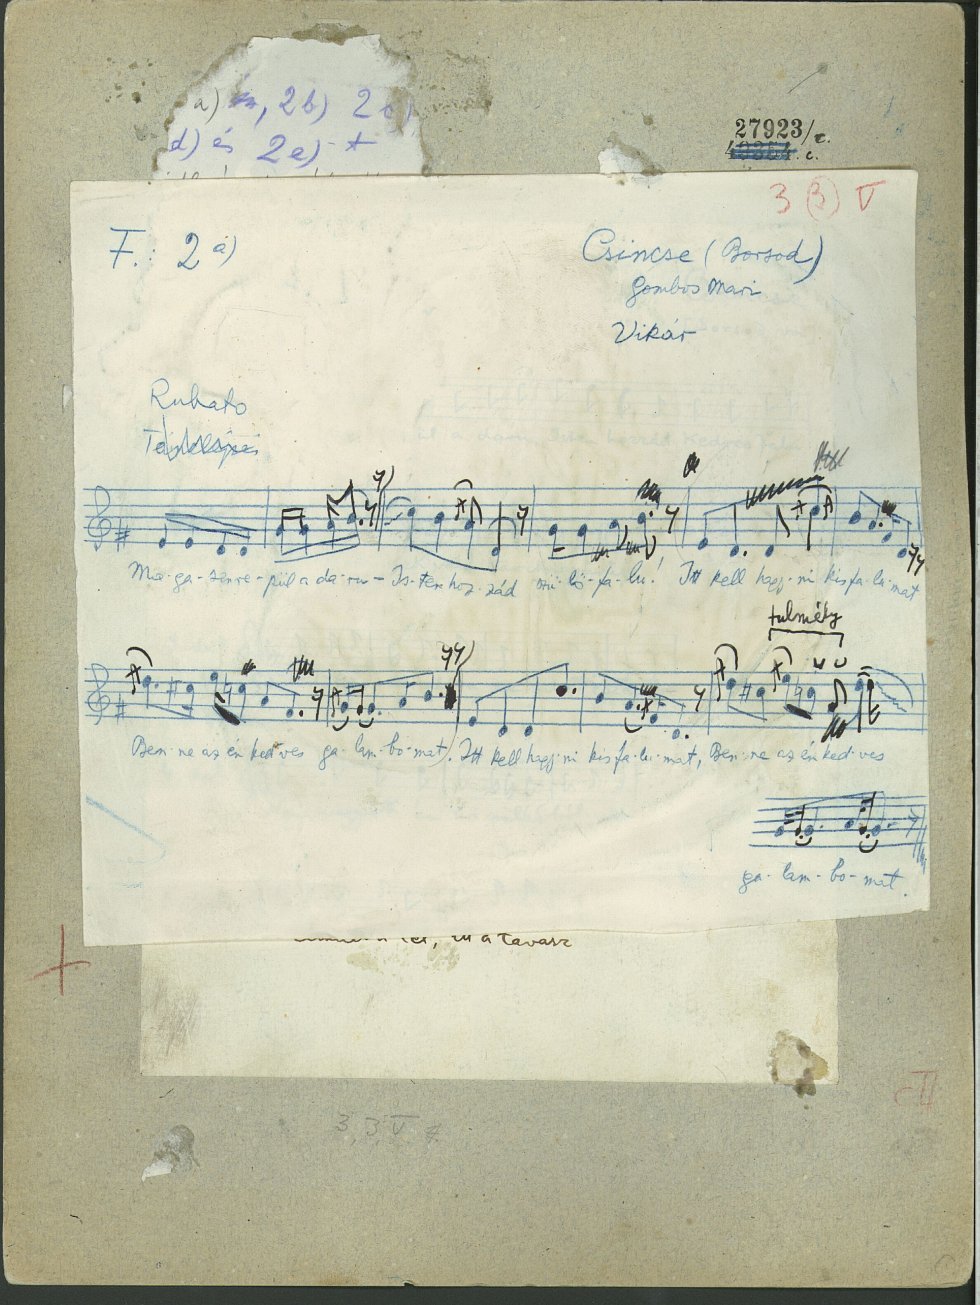 a) 2b) 2c)
d) és 2e) +
27923/c.
c.
3 (3) V
F.: 2 a)
Csincse (Borsod)
Gombos Mari
Vikár
Rubato
Ma-ga-ssan re-pül a da-ru – Is-ten hoz-zád szü-lő-fa-lu! Itt kell hagy-ni kis fa-lu-mat
tulmély
Ben-ne az én ked-ves ga-lam-bo-mat). Itt kell hagy-ni kis fa-lu-mat, Ben-ne az én ked-ves
ga-lam-bo-mat.
a tavasz
3, 3 V